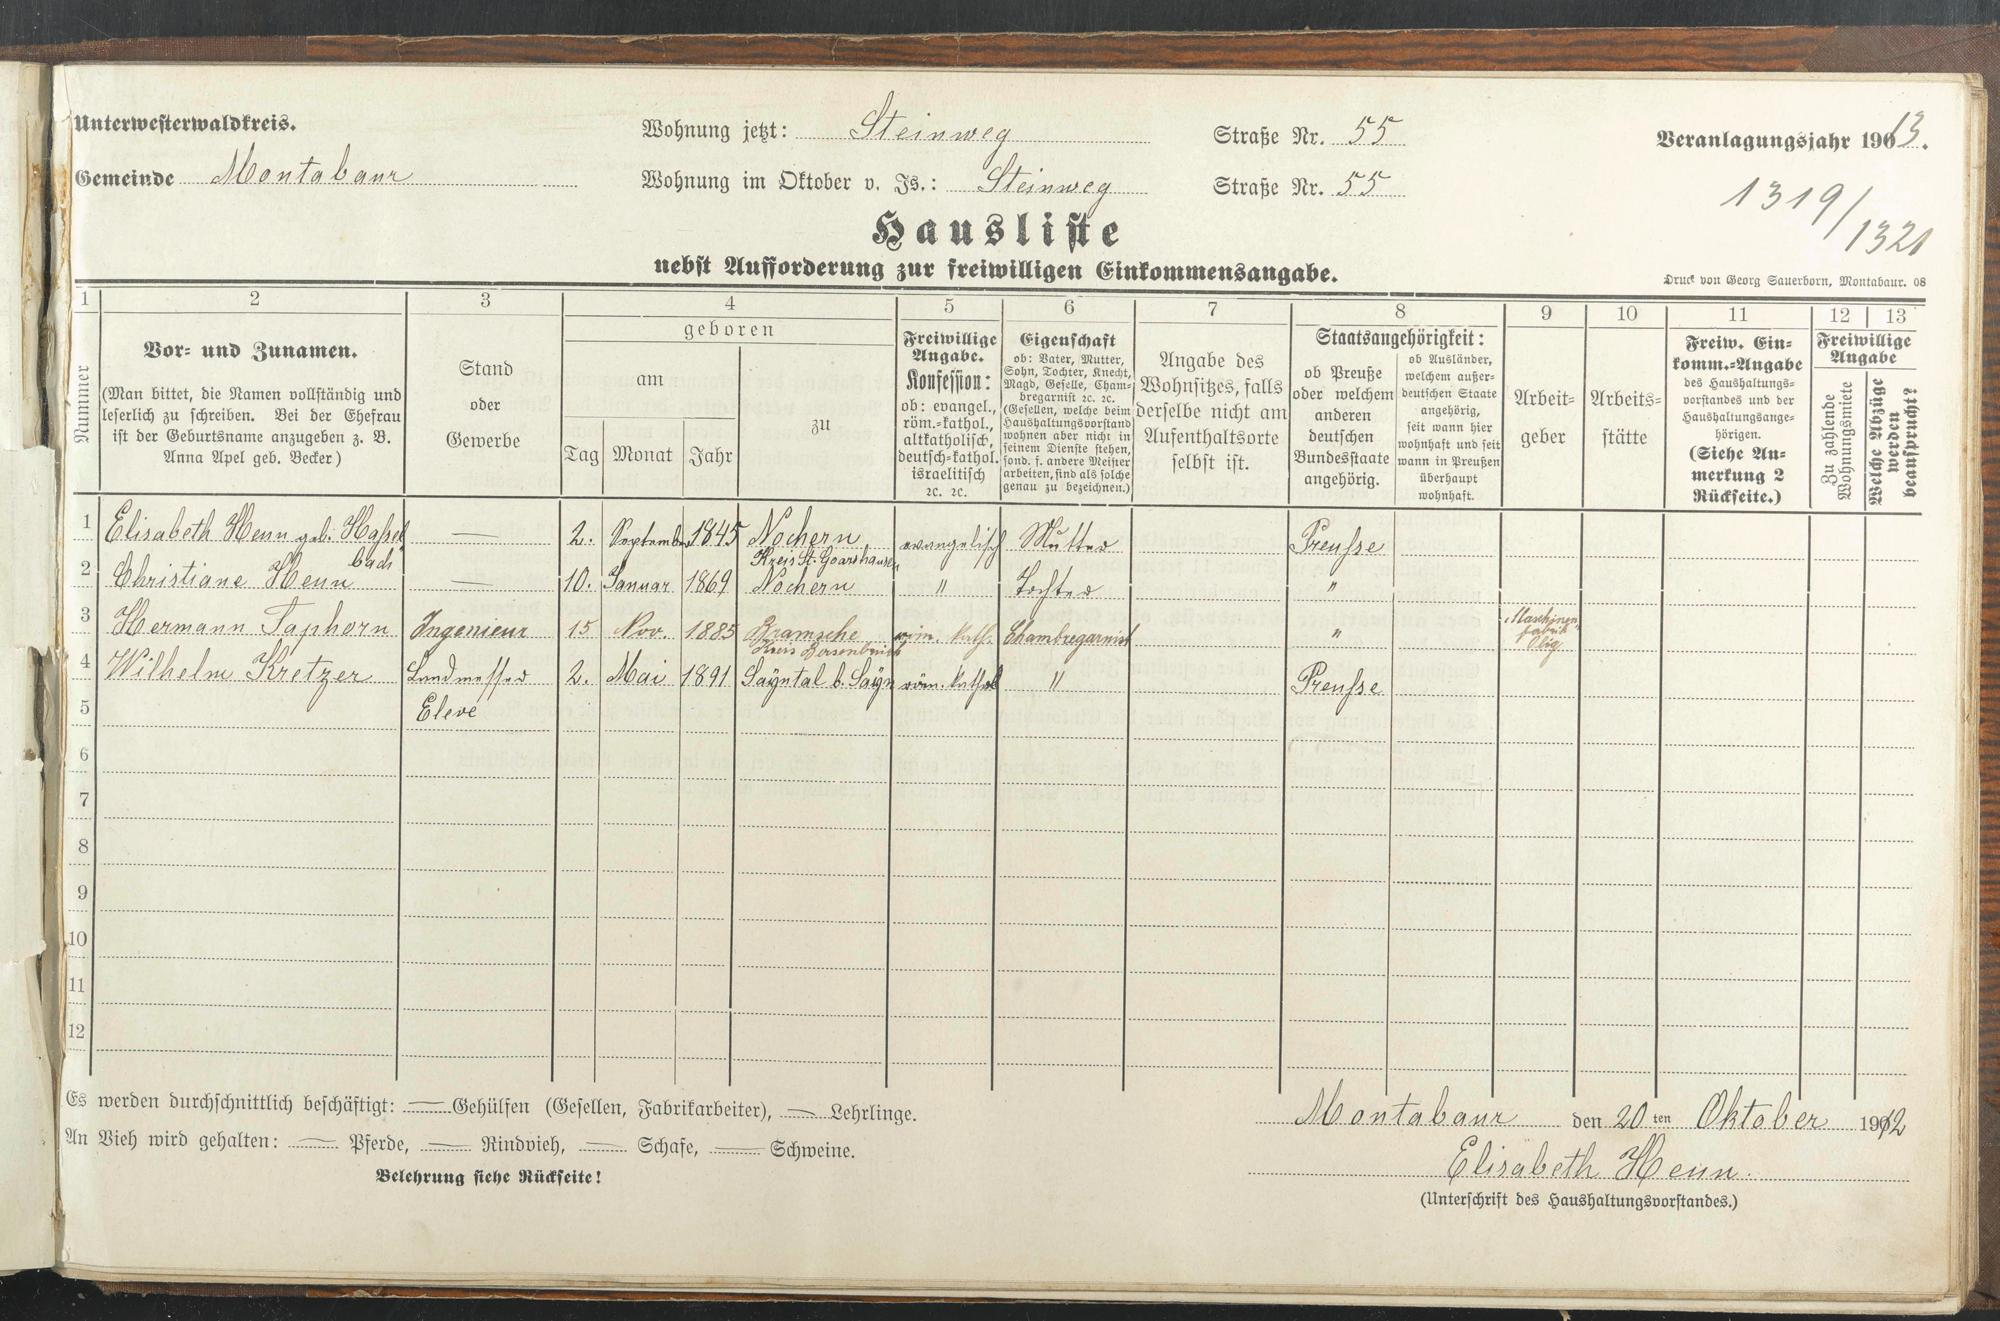 Unterwesterwaldkreis.
Gemeinde Montabaur
Wohnung jetzt: Steinweg Straße Nr. 55
Wohnung im Oktober v. Js.: Steinweg Straße Nr. 55
Veranlagungsjahr 1913.
1319/
1321
Hausliste
nebst Aufforderung zur freiwilligen Einkommensangabe.
Druck von Georg Sauerborn, Montabaur. 08
1 2 3 4 5 6 7 8 9 10 11 12 13
Nummer
Vor- und Zunamen.
(Man bittet, die Namen vollständig und
leserlich zu schreiben. Bei der Ehefrau
ist der Geburtsname anzugeben z. B.
Anna Apel geb. Becker)
Stand
oder
Gewerbe
geboren
am
Tag Monat Jahr
zu
Freiwillige
Angabe.
Konfession:
ob: evangel.,
röm.-kathol.,
altkatholisch,
deutsch-kathol.
israelitisch
ꝛc. ꝛc.
Eigenschaft
ob: Vater, Mutter,
Sohn, Tochter, Knecht,
Magd, Geselle, Cham-
bregarnist ꝛc. ꝛc.
(Gesellen, welche beim
Haushaltungsvorstand
wohnen aber nicht in
seinem Dienste stehen,
sond. f. andere Meister
arbeiten, sind als solche
genau zu bezeichnen.)
Angabe des
Wohnsitzes, falls
derselbe nicht am
Aufenthaltsorte
selbst ist.
Staatsangehörigkeit:
ob Preuße
oder welchem
anderen
deutschen
Bundesstaate
angehörig.
ob Ausländer,
welchem außer-
deutschen Staate
angehörig,
seit wann hier
wohnhaft und seit
wann in Preußen
überhaupt
wohnhaft.
Arbeit-
geber
Arbeits-
stätte
Freiw. Ein-
komm.-Angabe
des Haushaltungs-
vorstandes und der
Haushaltungsange-
hörigen.
(Siehe An-
merkung 2
Rückseite.)
Freiwillige
Angabe
Zu zahlende
Wohnungsmiete
Welche Abzüge
werden
beansprucht?
1 Elisabeth Henn geb. Hassel — 2. September 1845 Nochern evangelisch Mutter Preusse
bach Kreis St. Goarshausen
2 Christiane Henn — 10. Januar 1869 Nochern " Tochter "
3 Hermann Taphorn Ingenieur 15 Nov. 1885 Bramsche röm. kath. Chambregarnist " Maschinen-
Kreis Bersenbrück fabrik
4 Wilhelm Kretzer Landmesser 2. Mai 1891 Sayntal b. Sayn röm. kathol " Preusse
5 Eleve
6
7
8
9
10
11
12
Es werden durchschnittlich beschäftigt: — Gehülfen (Gesellen, Fabrikarbeiter), — Lehrlinge.
An Vieh wird gehalten: — Pferde, — Rindvieh, — Schafe, — Schweine.
Belehrung siehe Rückseite!
Montabaur den 20 ten Oktober 1912
Elisabeth Henn.
(Unterschrift des Haushaltungsvorstandes.)